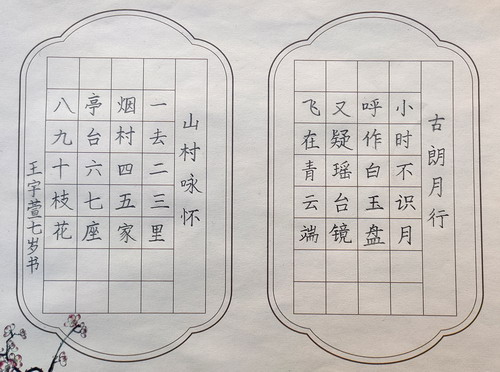 古朗月行
小时不识月
呼作白玉盘
又疑瑶台镜
飞在青云端
山村咏怀
一去二三里
烟村四五家
亭台六七座
八九十枝花
王宇萱七岁书